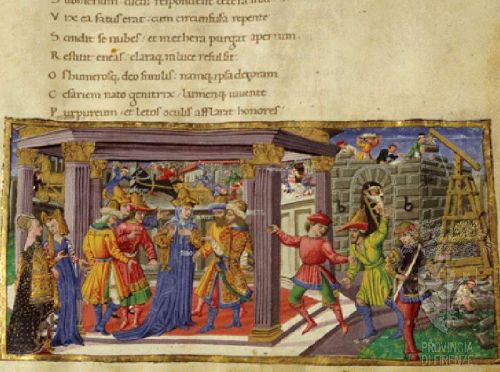 S ubmersum. dictis respondent cetera
V ix ea fatus erat cum circumfusa repente
S cindit se nubes / et inethera purgat apertum.
R estitit eneas. claraq; in luce refulsit:
O s humerosq; deo similis: namq; ipsa decoram
C esariem nato genitrix / lumenq; iuvente
P urpureum / et letos oculis afflarat honores /
PROVINCIA
DI FIRENZE